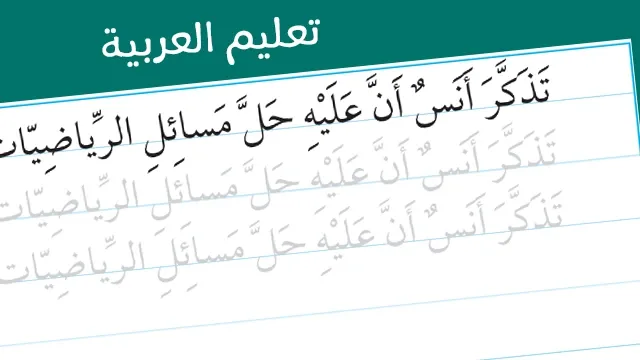 تعليم العربية
تَذَكَّرَ أَنَسٌ أَنَّ عَلَيْهِ حَلَّ مَسائِلِ الرِّياضِيّات
تَذَكَّرَ أَنَسٌ أَنَّ عَلَيْهِ حَلَّ مَسائِلِ الرِّياضِيّات
تَذَكَّرَ أَنَسٌ أَنَّ عَلَيْهِ حَلَّ مَسائِلِ الرِّياضِيّات